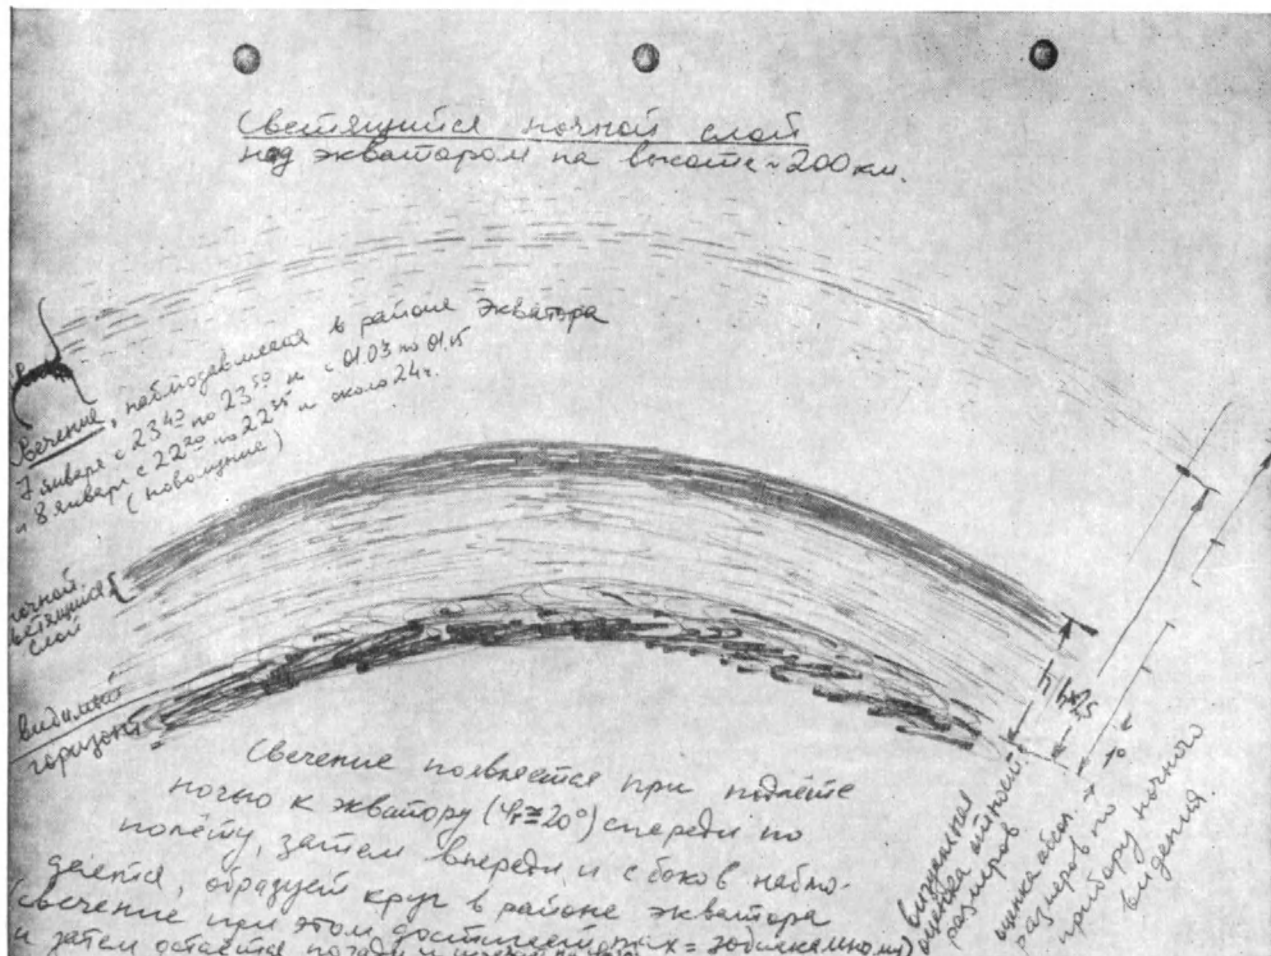 Светящийся ночной слой
над экватором на высоте ~200 км.
Свечение, наблюдавшееся в районе Экватора
7 января с 23 40 по 23 50 и с 01.03 по 01.15
и 8 января с 22 20 по 22 35 и около 24 ч.
(новолуние)
ночной
светящийся
слой
видимый
горизонт
h
Свечение появляется при подлёте
ночью к экватору (φг≅20°) спереди по
полёту, затем впереди и с боков наблю-
дается, образует круг в районе экватора
Свечение при этом достигает max = зодиакальному)
и затем остаётся позади и
визуальная
оценка относит.
размеров
оценка абсол.
размеров по
прибору ночного
видения.